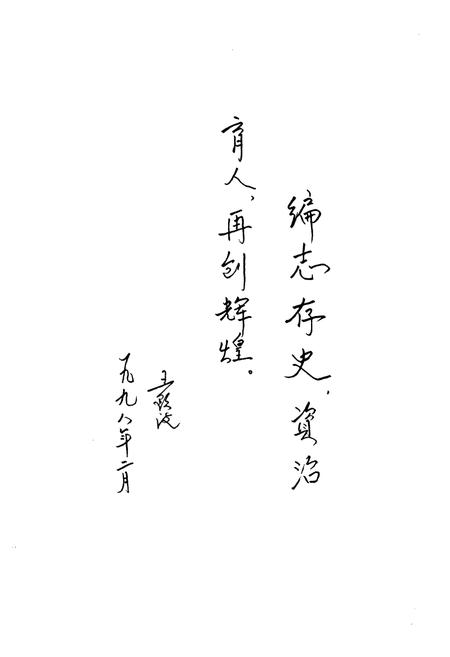 编志存史，資治
育人，再创辉煌。
一九九八年二月